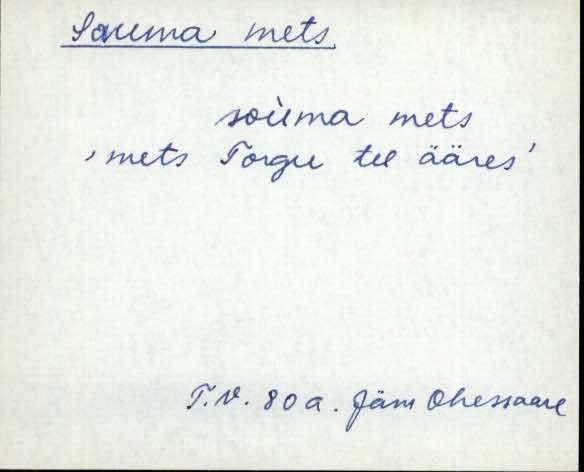 Sauma mets
soùma mets
, mets Torgu tee ääres'
T.V. 80 a. Jäm Ohessaare